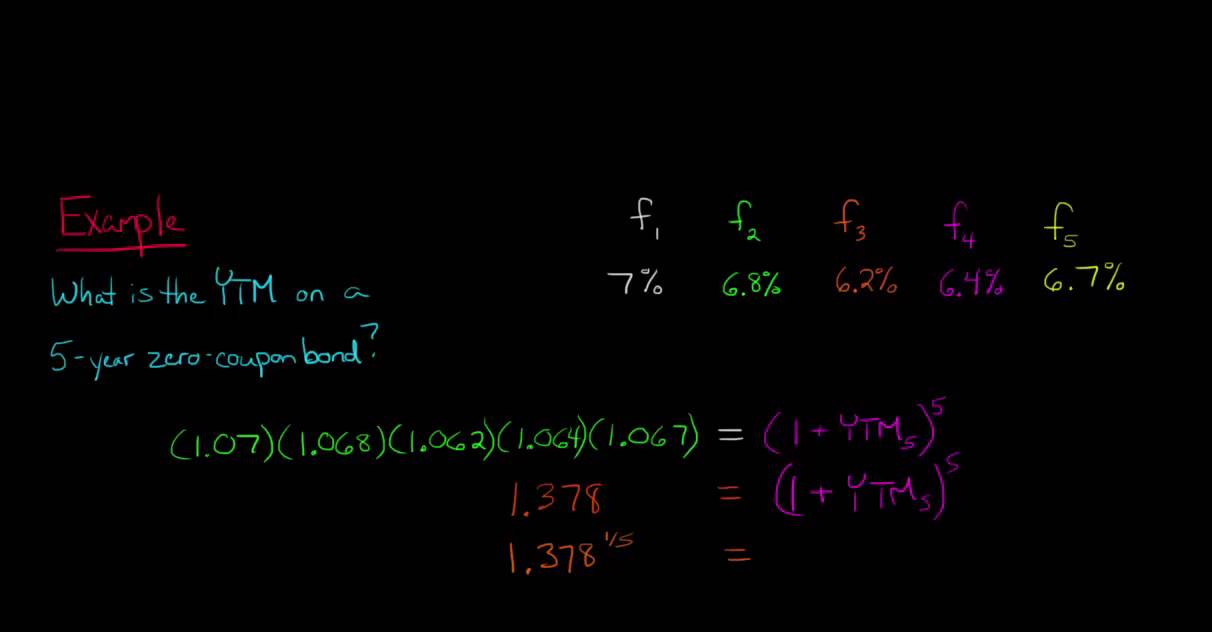 Example
f₁ f₂ f₃ f₄ f₅
What is the YTM on a
7% 6.8% 6.2% 6.4% 6.7%
5-year zero-coupon bond?
(1.07)(1.068)(1.062)(1.064)(1.067) = (1 + YTM₅)⁵
1.378 = (1 + YTM₅)⁵
1.378^1/5 =